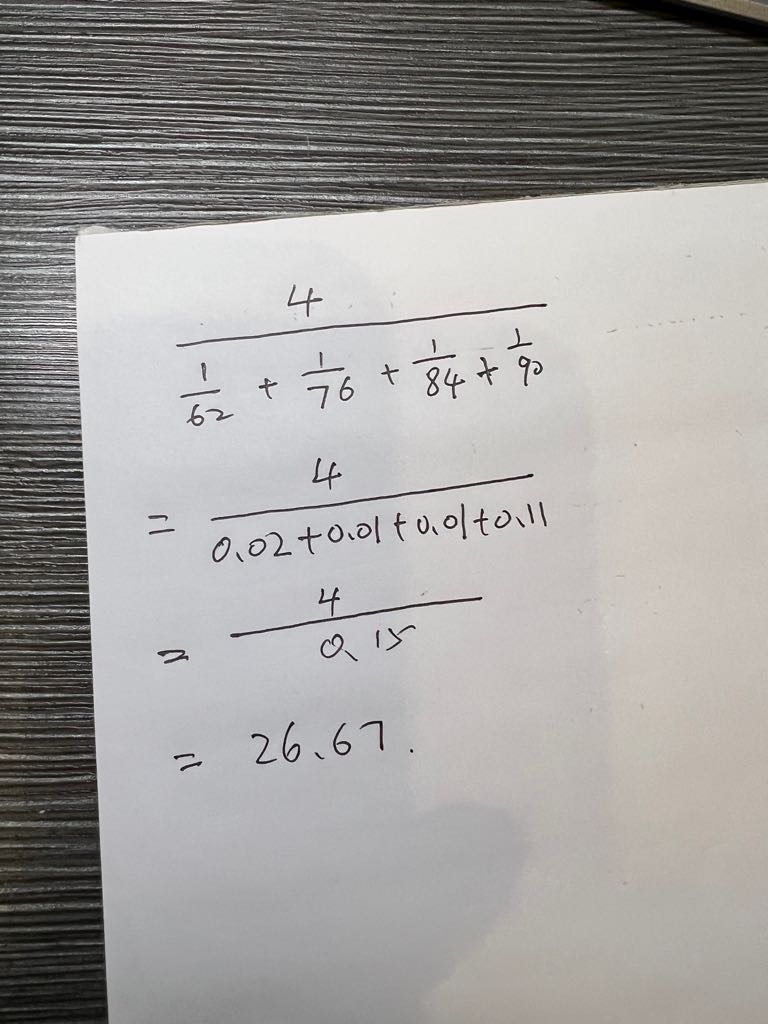 4
1/62 + 1/76 + 1/84 + 1/90
= 4
0.02+0.01+0.01+0.11
= 4
0.15
= 26.67.